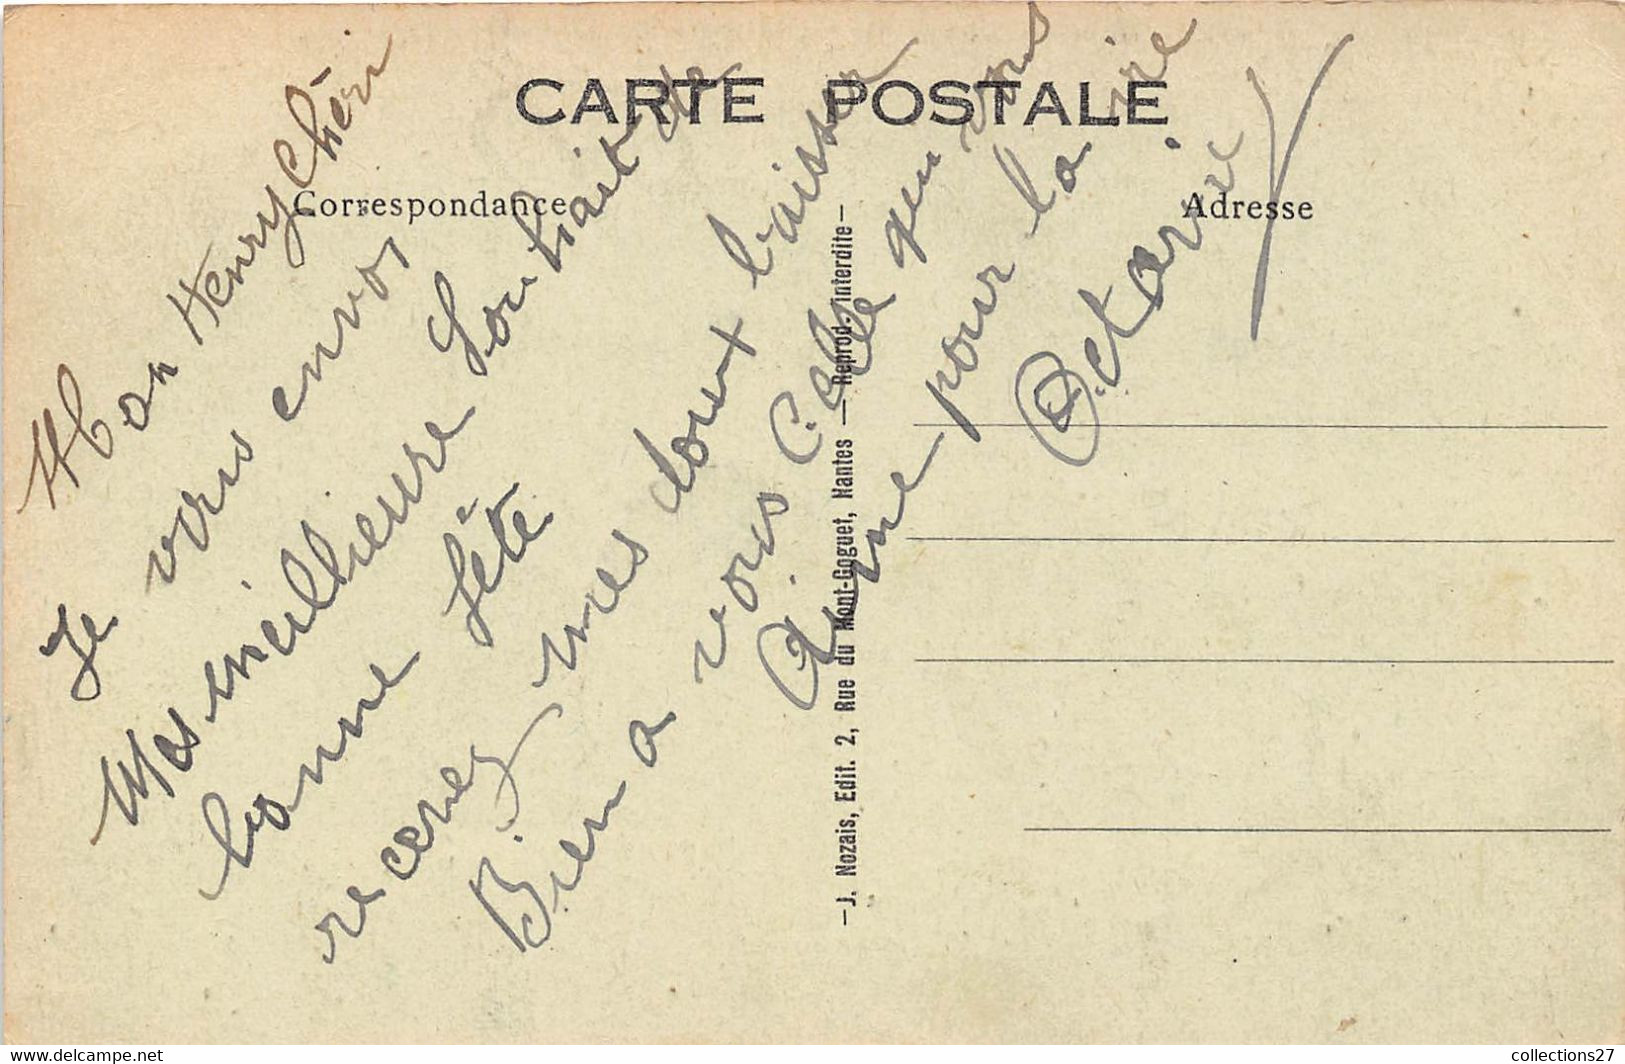 CARTE POSTALE
Correspondance
Adresse
Mon Henry Chèri
Je vous envoi
Mes meillieure Souhait de
bonne fête
recevez mes doux baisser
Bien a vous Celle qeu vous
Aime pour la vie
Octavie
—J. Nozais, Edit. 2, Rue du Mont-Goguet, Nantes — Reprod. interdite—
www.delcampe.net
collections27